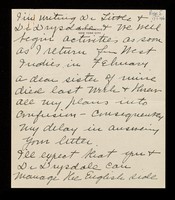 I'm writing Dr Little &
Dr Drysdale & we will
begin activities as soon
as I return from West
Indies in February
a dear sister of mine
died last week & threw
all my plans into
confusion - consequently
my delay in answering
your letter.
I'll expect that you &
Dr Drysdale can
manage the English side